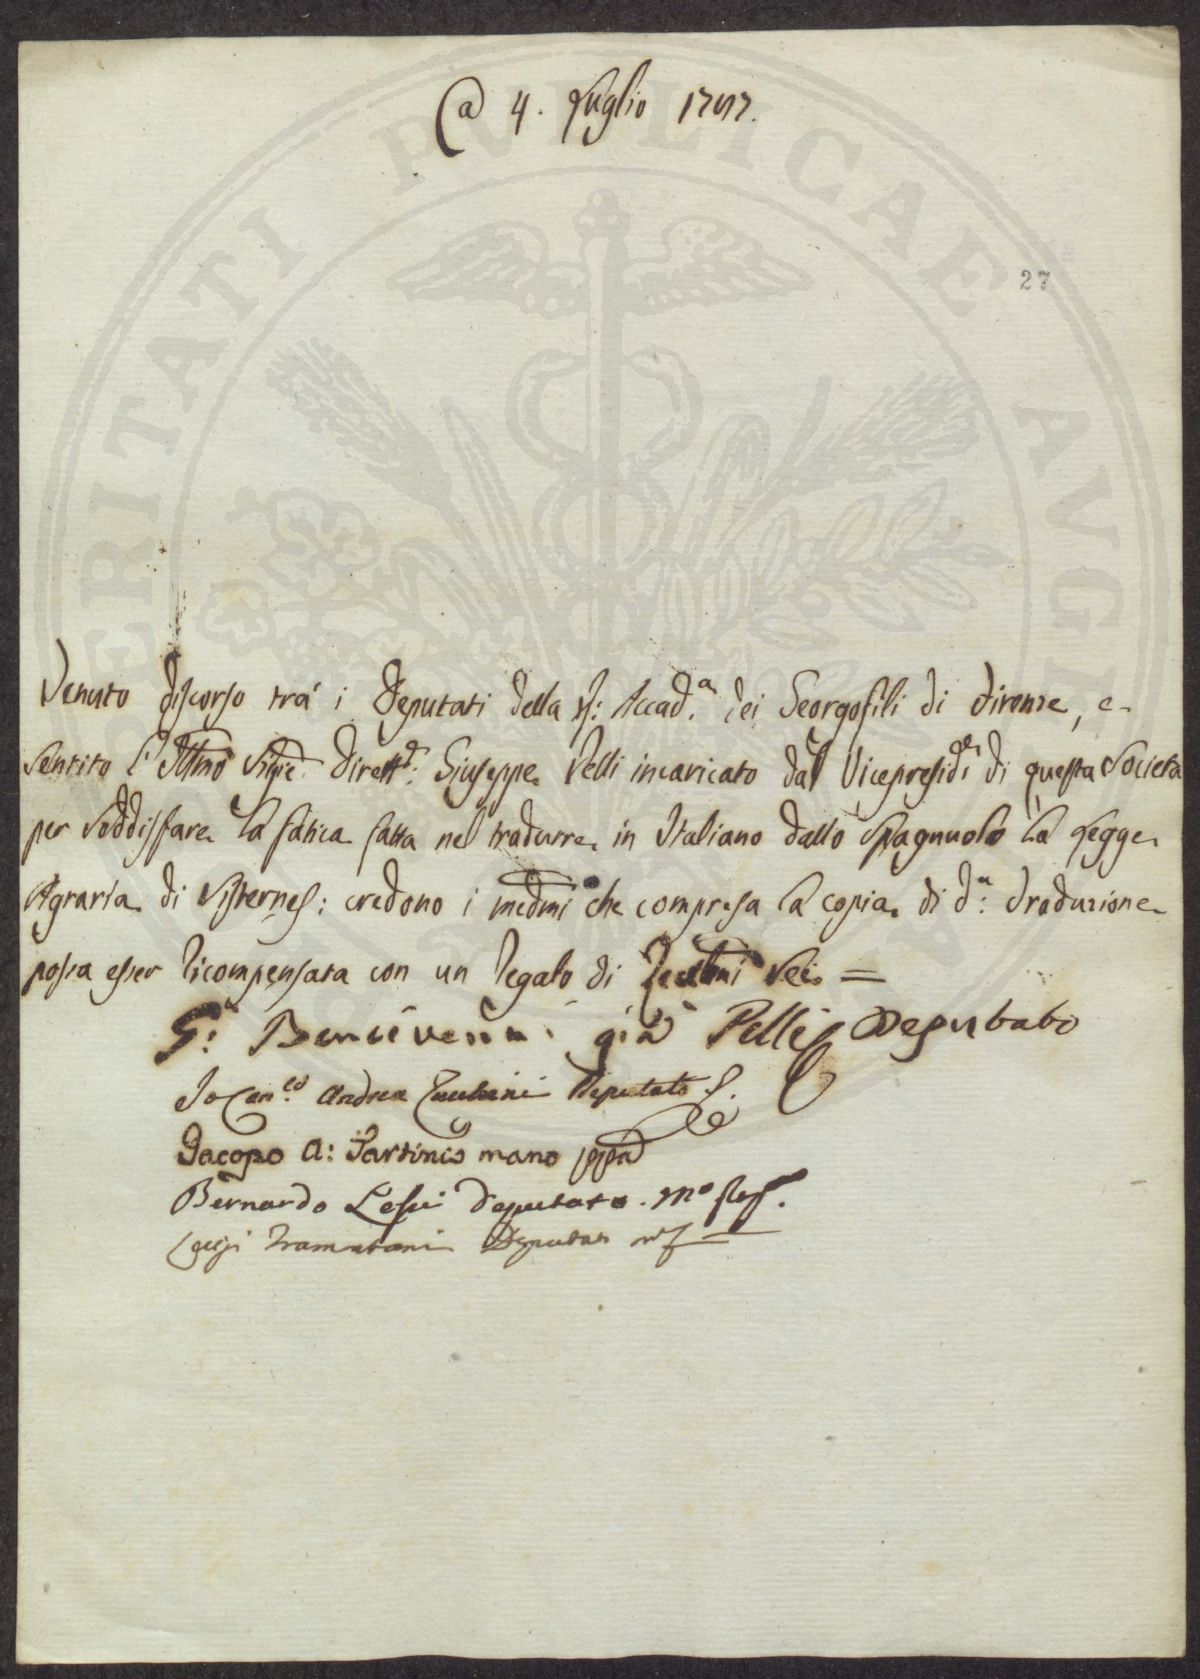 @ 4. Luglio 1797.
27
Venuto discorso trà i Deputati della R: Accad.a dei Georgofili di Firenze, e
sentito l'Illmo Sigre Dirett.: Giuseppe Pelli incaricato dal Vicepresid.te di questa Società
per soddisfare la fatica fatta nel tradurre in Italiano dallo Spagnuolo la Legge
Agraria di Sisternes: credono i medmi che compresa la copia di d.a Traduzione
possa esser ricompensata con un regalo di Zecchini Sei =
G: Bencivenni già Pelli Deputato
Io Can.co Andrea Zucchini Deputato
Jacopo A: Tartini mano ppa
Bernardo Lessi Deputato. mo
Luigi Tramontani Deputato
PVBLICAE